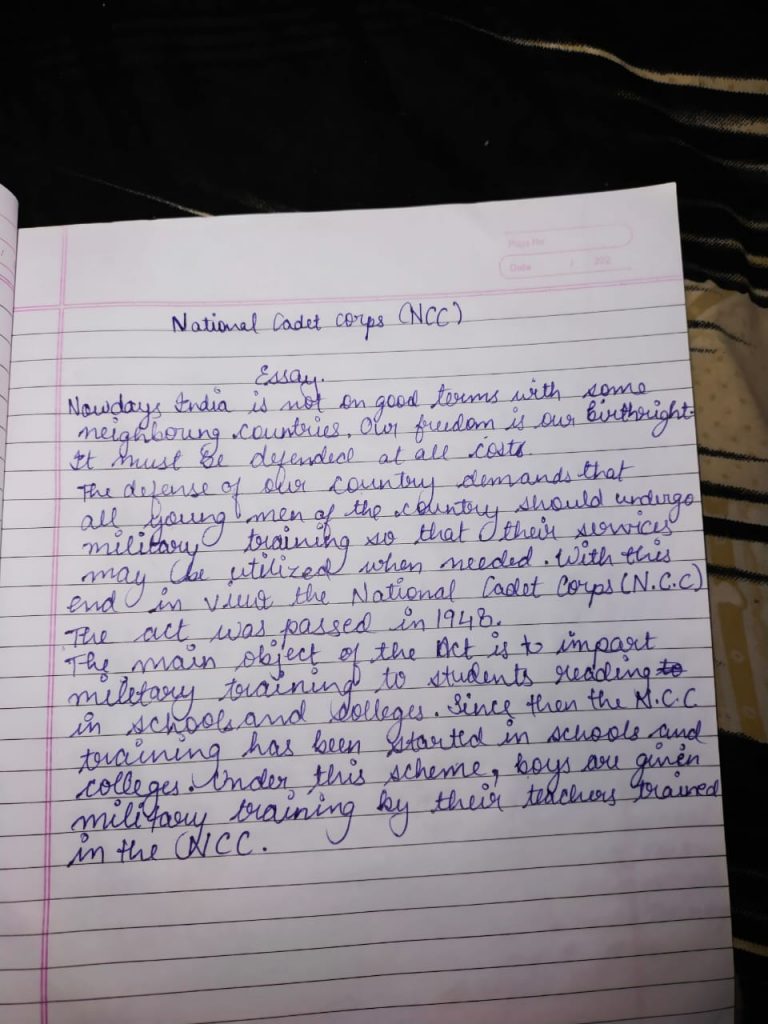 Page No
Date / 202
National Cadet corps (NCC)
Essay.
Nowdays India is not on good terms with some
neighboung countries. Our freedom is our birthright
It must be defended at all costs.
The defense of our country demands that
all young men of the country should undergo
military training so that their services
may be utilized when needed. With this
end in view the National Cadet Corps (N.C.C)
The act was passed in 1948.
The main object of the Act is to impart
military training to students reading to
in schools and colleges. Since then the N.C.C
training has been started in schools and
colleges. Under this scheme, boys are given
military training by their teachers trained
in the NCC.